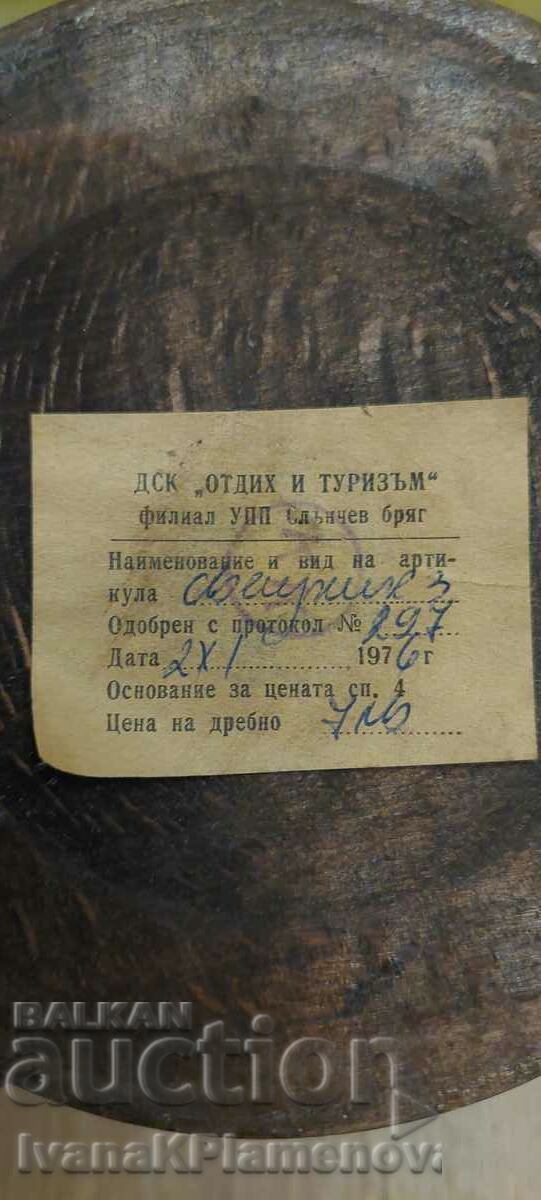 ДСК „ОТДИХ И ТУРИЗЪМ“
филиал УПП Слънчев бряг
Наименование и вид на арти-
кула свещник 3
Одобрен с протокол № 297
Дата 2 XI 1976 г
Основание за цената сп. 4
Цена на дребно 7 лв
BALKAN
auction
IvanaKPlamenova